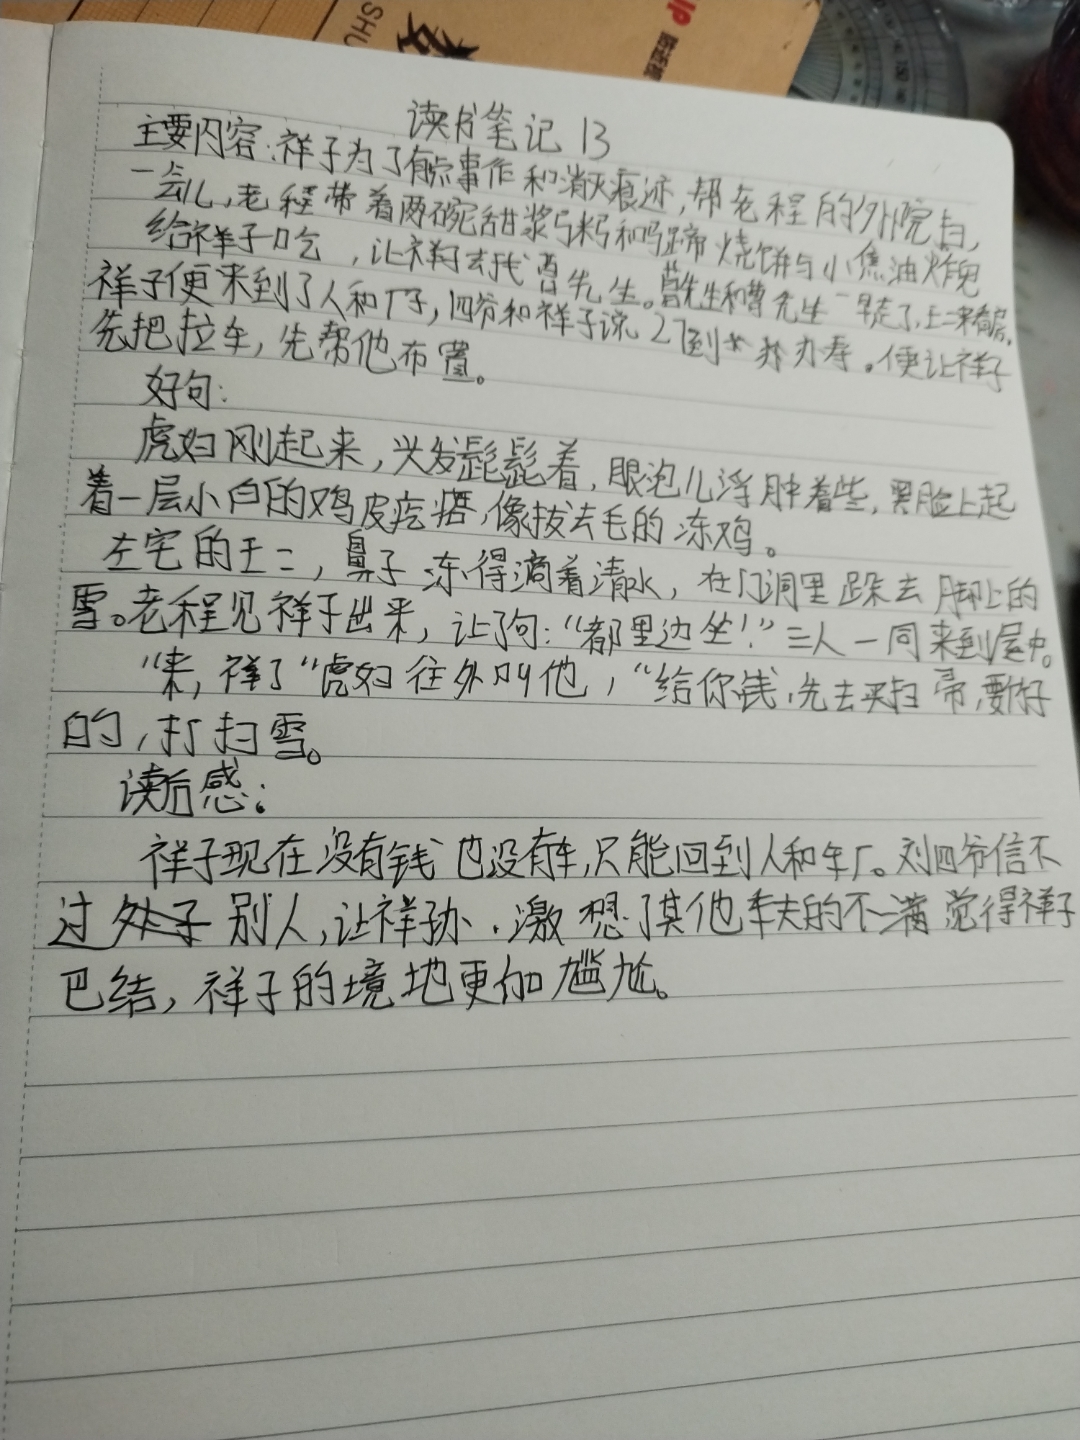 SHU
读书笔记 13
主要内容:祥子为了有点事作和消灭痕迹,帮老程的外院
一会儿,老程带着两碗甜浆粥和马蹄烧饼与小焦油炸鬼
给祥子吃,让祥子去找曹先生。曹先生和曹先生一早走了,王二来看房,
祥子便来到了人和厂子,四爷和祥子说27办寿。便让祥子
先把拉车,先帮他布置。
好句:
虎妞刚起来,头发髭髭着,眼泡儿浮肿着些,黑脸上起
着一层小白的鸡皮疙瘩,像拔去毛的冻鸡。
左宅的王二,鼻子冻得滴着清水,在门洞里跺去脚上的
雪。老程见祥子出来,让了句:“都里边坐!”三人一同来到屋中。
“来,祥子”虎妞往外叫他,“给你钱,先去买扫帚,要好
的,打扫雪。
读后感:
祥子现在没有钱也没有车,只能回到人和车厂。刘四爷信不
过别人,让祥子办.激想了其他车夫的不满觉得祥子
巴结,祥子的境地更加尴尬。